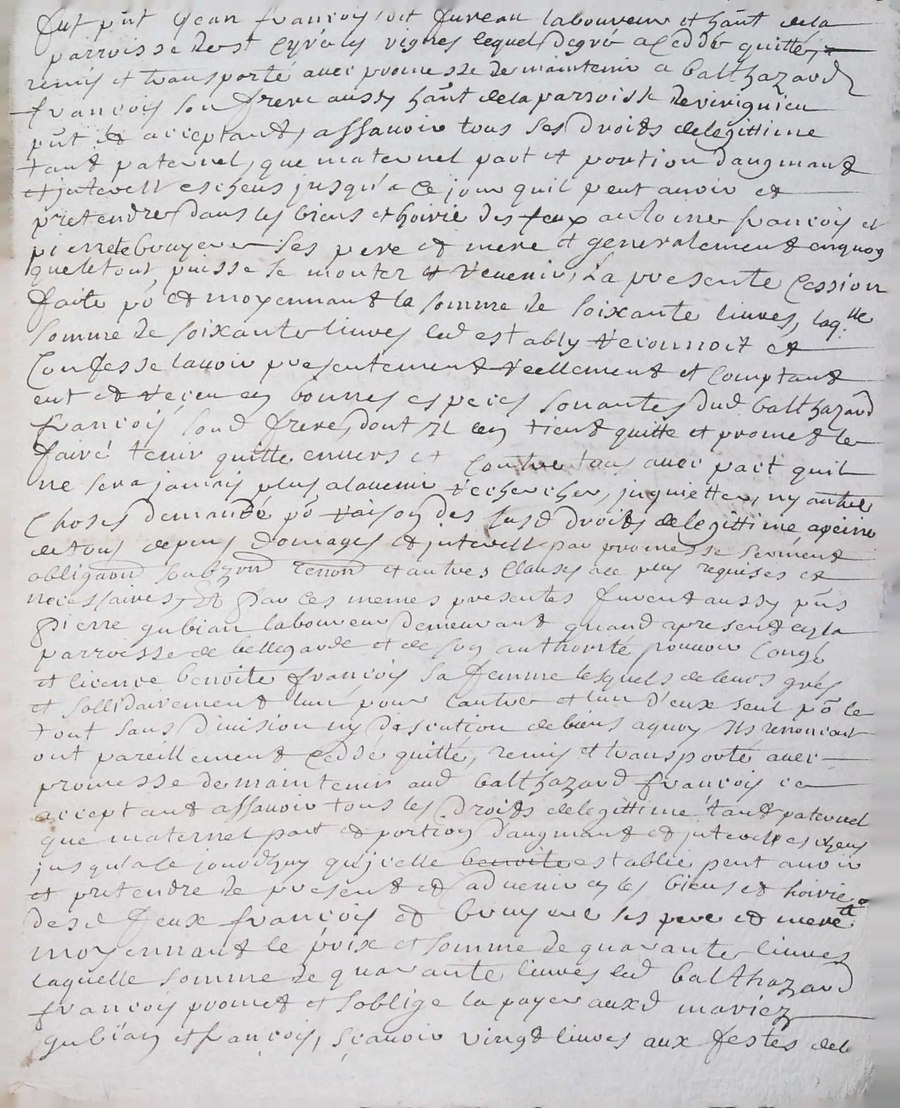 fut pnt Jean françois dit Jureau laboureur et hant de la
parroisse de st Cyr les vignes lequel degré a ceddé quitté,
remis et transporté avec promesse de maintenir a balthazard
françois son frere aussy hant de la parroisse de virignieu
pnt et acceptant, assauoir tous ses droits de legittime
tant paternel, que maternel part et portion daugmant
et jnterest escheus jusqu'a ce jour quil peut auoir et
pretendre dans les biens et hoirie des feux antoine françois et
pierrette bruyere ses pere et mere et generalement en quoy
que le tout puisse se monter et reuenir, la presente Cession
faite po et moyennant la somme de soixante liures, laqlle
somme de soixante liures led establÿ reconnoit et
Confesse lauoir presentement reellement et comptant
eut et receu en bonnes especes sonantes dud balthazard
françois, sond frere, dont Il en tient quitte et promet le
faire tenir quitte enuers et Contre tous auec pact quil
ne sera jamais plus alauenir rechercher, jnquietter, ny autre
Choses demandé po raison des susd droits de legittime apeine
de tous depens domages et jnterest par promesse serment
obligaon soubzon renon et autres Clauses ace plus requises et
necessaires, Et par ces memes presentes furent aussy pns
pierre gubian laboureur demeurant quand apresent en la
parroisse de bellegarde et de son authorité pouuoir Congé
et licence benoite françois sa femme lesquels de leurs grés
et sollidairement lun pour lautre et lun d'eux seul po le
tout sans diuision ny discution de biens aquoy Ils renoncant
ont pareillement cedde quitte, remis et transporté auec
promesse de maintenir aud balthazard françois ce
acceptant assauoir tous les droits de legittime tant paternel
que maternel part et portion d'augmant et jnterest escheus
jusqua ce jourdhuy qujcelle benoite establie peut auoir
et pretendre de present et aduenir en les biens et hoirie
desd feux françois et bruyere ses pere et mere et
moyennant le prix et somme de quarante liures
laquelle somme de quarante liures led balthazard
françois promet et soblige la payer auxd mariéz
gubian et françois, sçauoir vingt liures aux festes de